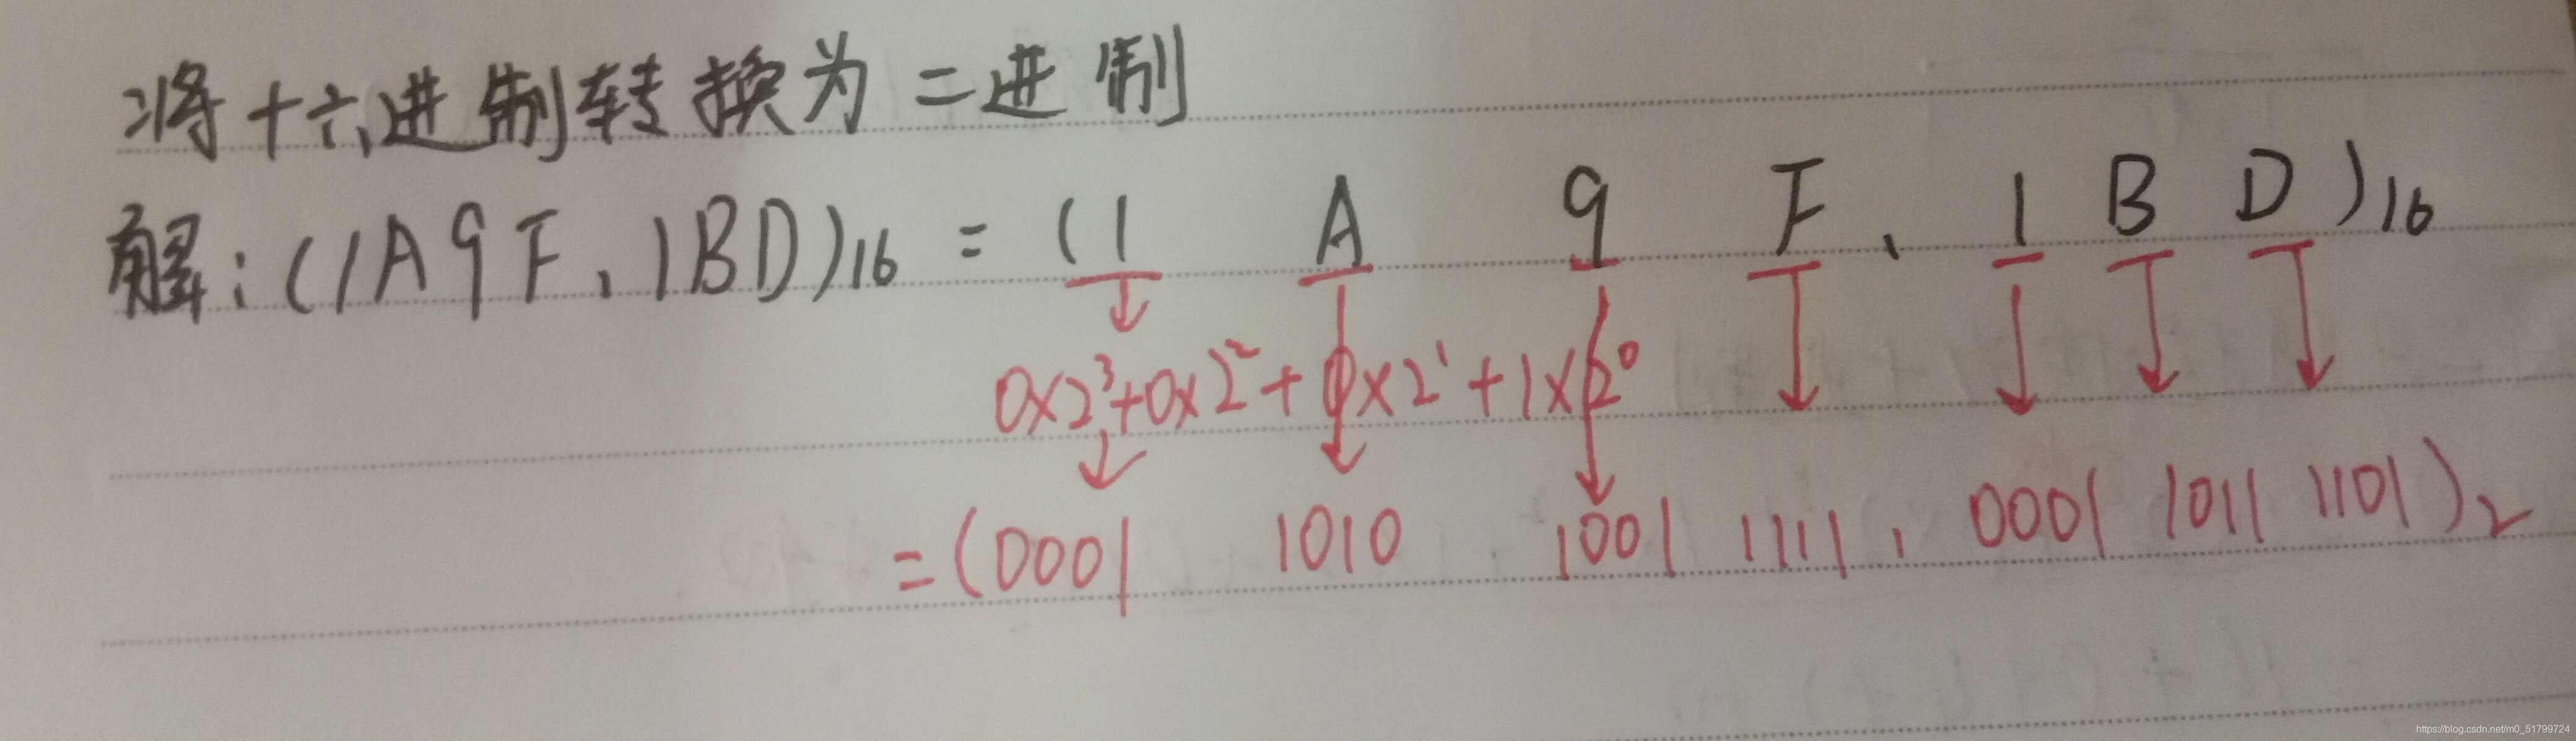 将十六进制转换为二进制
解:(1A9F、1BD)16 = (1 A 9 F、1 B D)16
0×2³+0×2²+0×2¹+1×2⁰
=(0001 1010 1001 1111、0001 1011 1101)2
https://blog.csdn.net/m0_51799724